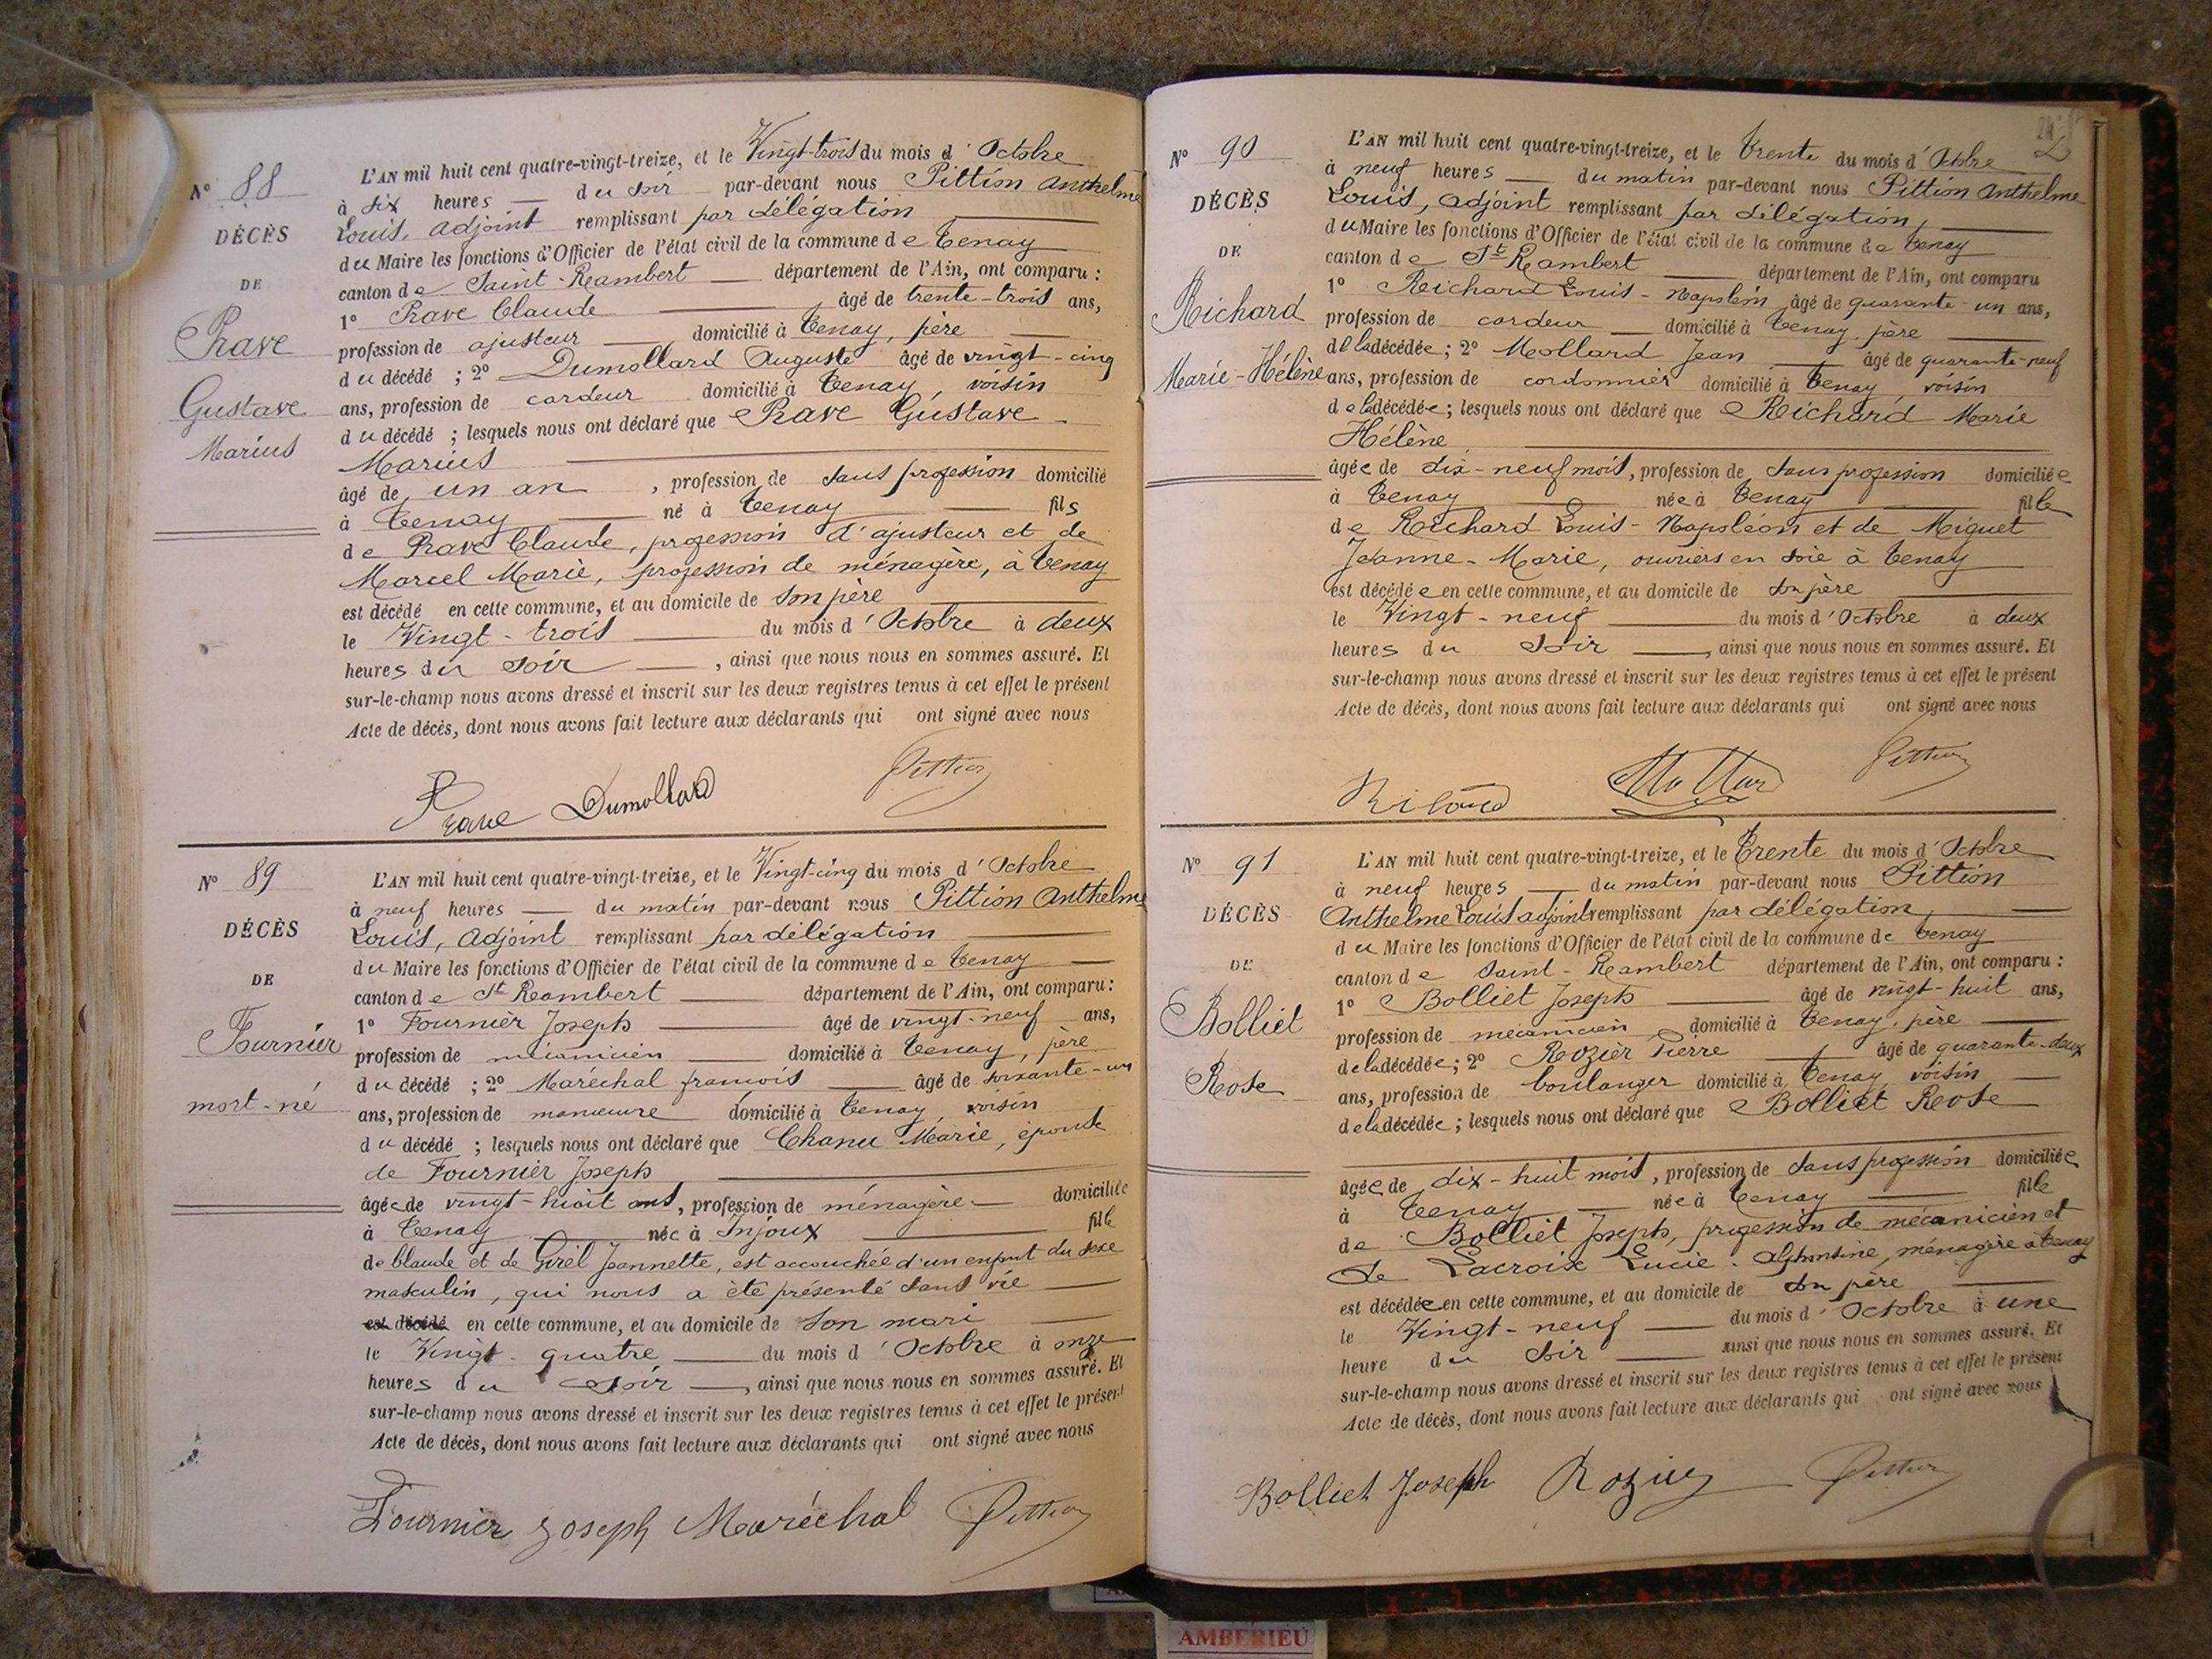 N° 88
DÉCÈS
DE
Prave
Gustave
Marius
L'AN mil huit cent quatre-vingt-treize, et le Vingt-trois du mois d'Octobre
à six heures du soir par-devant nous Pittion Anthelme
Louis, adjoint remplissant par délégation
du Maire les fonctions d'Officier de l'état civil de la commune de Tenay
canton de Saint-Rambert département de l'Ain, ont comparu :
1° Prave Claude âgé de trente-trois ans,
profession de ajusteur domicilié à Tenay, père
du décédé ; 2° Dumollard Auguste âgé de vingt-cinq
ans, profession de cardeur domicilié à Tenay, voisin
du décédé ; lesquels nous ont déclaré que Prave Gustave
Marius
âgé de un an, profession de sans profession domicilié
à Tenay né à Tenay fils
de Prave Claude, profession d'ajusteur et de
Marcel Marie, profession de ménagère, à Tenay
est décédé en cette commune, et au domicile de son père
le Vingt-trois du mois d'Octobre à deux
heures du soir, ainsi que nous nous en sommes assuré. Et
sur-le-champ nous avons dressé et inscrit sur les deux registres tenus à cet effet le présent
Acte de décès, dont nous avons fait lecture aux déclarants qui ont signé avec nous
Prave Dumollard Pittion
N° 89
DÉCÈS
DE
Fournier
mort-né
L'AN mil huit cent quatre-vingt-treize, et le Vingt-cinq du mois d'Octobre
à neuf heures du matin par-devant nous Pittion Anthelme
Louis, adjoint remplissant par délégation
du Maire les fonctions d'Officier de l'état civil de la commune de Tenay
canton de St Rambert département de l'Ain, ont comparu :
1° Fournier Joseph âgé de vingt-neuf ans,
profession de mécanicien domicilié à Tenay, père
du décédé ; 2° Maréchal françois âgé de soixante-un
ans, profession de manœuvre domicilié à Tenay, voisin
du décédé ; lesquels nous ont déclaré que Chanu Marie, épouse
de Fournier Joseph
âgée de vingt-huit ans, profession de ménagère domiciliée
à Tenay née à Injoux fille
de Claude et de Girel Jeannette, est accouchée d'un enfant du sexe
masculin, qui nous a été présenté sans vie
est décédé en cette commune, et au domicile de son mari
le Vingt-quatre du mois d'Octobre à onze
heures du soir, ainsi que nous nous en sommes assuré. Et
sur-le-champ nous avons dressé et inscrit sur les deux registres tenus à cet effet le présent
Acte de décès, dont nous avons fait lecture aux déclarants qui ont signé avec nous
Fournier Joseph Maréchal Pittion
N° 90
DÉCÈS
DE
Richard
Marie-Hélène
L'AN mil huit cent quatre-vingt-treize, et le Trente du mois d'Octobre
à neuf heures du matin par-devant nous Pittion Anthelme
Louis, adjoint remplissant par délégation,
du Maire les fonctions d'Officier de l'état civil de la commune de Tenay
canton de St Rambert département de l'Ain, ont comparu
1° Richard Louis-Napoléon âgé de quarante-un ans,
profession de cardeur domicilié à Tenay, père
de la décédée ; 2° Mollard Jean âgé de quarante-neuf
ans, profession de cordonnier domicilié à Tenay voisin
de la décédée ; lesquels nous ont déclaré que Richard Marie
Hélène
âgée de dix-neuf mois, profession de sans profession domiciliée
à Tenay née à Tenay fille
de Richard Louis-Napoléon et de Miguet
Jeanne-Marie, ouvriers en soie à Tenay
est décédée en cette commune, et au domicile de son père
le Vingt-neuf du mois d'Octobre à deux
heures du soir, ainsi que nous nous en sommes assuré. Et
sur-le-champ nous avons dressé et inscrit sur les deux registres tenus à cet effet le présent
Acte de décès, dont nous avons fait lecture aux déclarants qui ont signé avec nous
Mollard Pittion
N° 91
DÉCÈS
DE
Bolliet
Rose
L'AN mil huit cent quatre-vingt-treize, et le Trente du mois d'Octobre
à neuf heures du matin par-devant nous Pittion
Anthelme Louis adjoint remplissant par délégation,
du Maire les fonctions d'Officier de l'état civil de la commune de Tenay
canton de Saint-Rambert département de l'Ain, ont comparu :
1° Bolliet Joseph âgé de vingt-huit ans,
profession de mécanicien domicilié à Tenay, père
de la décédée ; 2° Rozier Pierre âgé de quarante-deux
ans, profession de boulanger domicilié à Tenay, voisin
de la décédée ; lesquels nous ont déclaré que Bolliet Rose
âgée de dix-huit mois, profession de sans profession domiciliée
à Tenay née à Tenay fille
de Bolliet Joseph, profession de mécanicien et
de Lacroix Lucie-Alphonsine, ménagère à Tenay
est décédée en cette commune, et au domicile de son père
le Vingt-neuf du mois d'Octobre à une
heure du soir ainsi que nous nous en sommes assuré. Et
sur-le-champ nous avons dressé et inscrit sur les deux registres tenus à cet effet le présent
Acte de décès, dont nous avons fait lecture aux déclarants qui ont signé avec nous
Bolliet Joseph Rozier Pittion
AMBERIEU